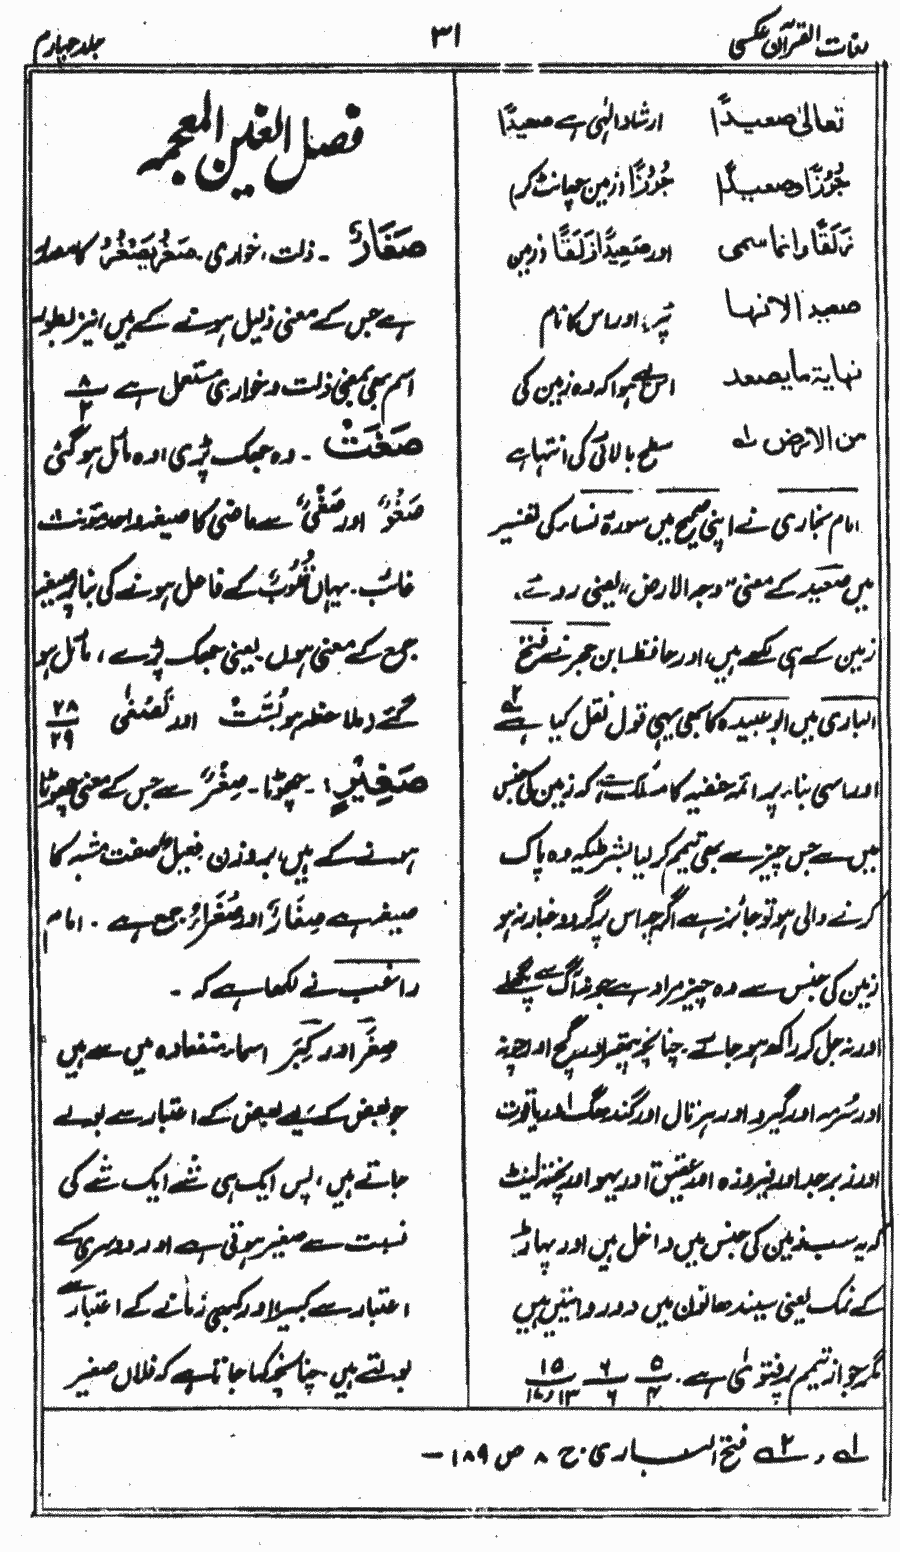 لغات القرآن عکسی
۳۱
جلد چہارم
تعالیٰ صعیدًا ارشاد الٰہی ہے صعیدًا
جُرُزًا وصعیدًا جُرُزًا (زمین چھانٹ کر)
زَلَقًا وانما سمی اور صَعِیدًا زَلَقًا زمین
صعیدا لانہا پَر، اور اس کا نام
نہایۃ ما یصعد اس لئے ہوا کہ وہ زمین کی
من الارض لہ سطح بالائی کی انتہا ہے
امام بخاری نے اپنی صحیح میں سورۃ نساء کی تفسیر
میں صعید کے معنی "وجہ الارض" یعنی روئے
زمین کے ہی لکھے ہیں، اور حافظ ابن حجر نے فتح
الباری میں ابو عبیدہ کا بھی یہی قول نقل کیا ہے ۲ہ
اور اسی بناء پر ائمہ حنفیہ کا مسلک ہے کہ زمین کی جنس
میں سے جس چیز سے بھی تیمم کر لیا بشرطیکہ وہ پاک
کرنے والی ہو تو جائز ہے اگرچہ اس پر گرد و غبار نہ ہو
زمین کی جنس سے وہ چیز مراد ہے جو نہ آگ سے پگھلے
اور نہ جل کر راکھ ہو جائے۔ چنانچہ پتھر اور گچ اور چونہ
اور سُرمہ اور گیرو اور ہرتال اور گندھک اور یاقوت
اور زبرجد اور فیروزہ اور عقیق اور یہو اور پختہ اینٹ
کہ یہ سب زمین کی جنس میں داخل ہیں اور پہاڑ
کے نمک یعنی سیندھا نون میں دو روائتیں ہیں
مگر جواز تیمم پر فتویٰ ہے۔ ۵/۴ ۶/۶ ۱۵/۱۳و۱۶
فصل الغین المعجمہ
صَغَارٌ ۔ ذلت، خواری۔ صَغُرَ یَصْغُرُ کا مصدر
ہے جس کے معنی ذلیل ہونے کے ہیں، نیز بطور
اسم بھی بمعنی ذلت و خواری مستعمل ہے ۸/۲
صَغَتْ ۔ وہ جھک پڑی اور وہ مائل ہو گئی
صَغْوٌ اور صَغْیٌ سے ماضی کا صیغہ واحد مونث
غائب۔ یہاں قُلُوبٌ کے فاعل ہونے کی بنا پر صیغہ
جمع کے معنی ہوں۔ یعنی جھک پڑے، مائل ہو
گئے (ملاحظہ ہو بُسَّت اور لَصَغٰی) ۲۸/۲۹
صَغِیْرٍ: چھوٹا۔ صِغْرٌ سے جس کے معنی چھوٹا
ہونے کے ہیں، بروزن فعیل صفت مشبہ کا
صیغہ ہے صِغَارٌ اور صُغَرَاءُ جمع ہے۔ امام
راغب نے لکھا ہے کہ ۔
صِغَر اور کِبَر اسماء متضادہ میں سے ہیں
جو بعض کے لیے بعض کے اعتبار سے بولے
جاتے ہیں، پس ایک ہی شے ایک شے کی
نسبت سے صغیر ہوتی ہے اور دوسری کے
اعتبار سے کبیر اور کبھی زمانے کے اعتبار سے
بولتے ہیں۔ چنانچہ کہا جاتا ہے کہ فلاں صغیر
۱ہ و ۲ہ فتح الباری۔ ج ۸ ص ۱۸۹ —